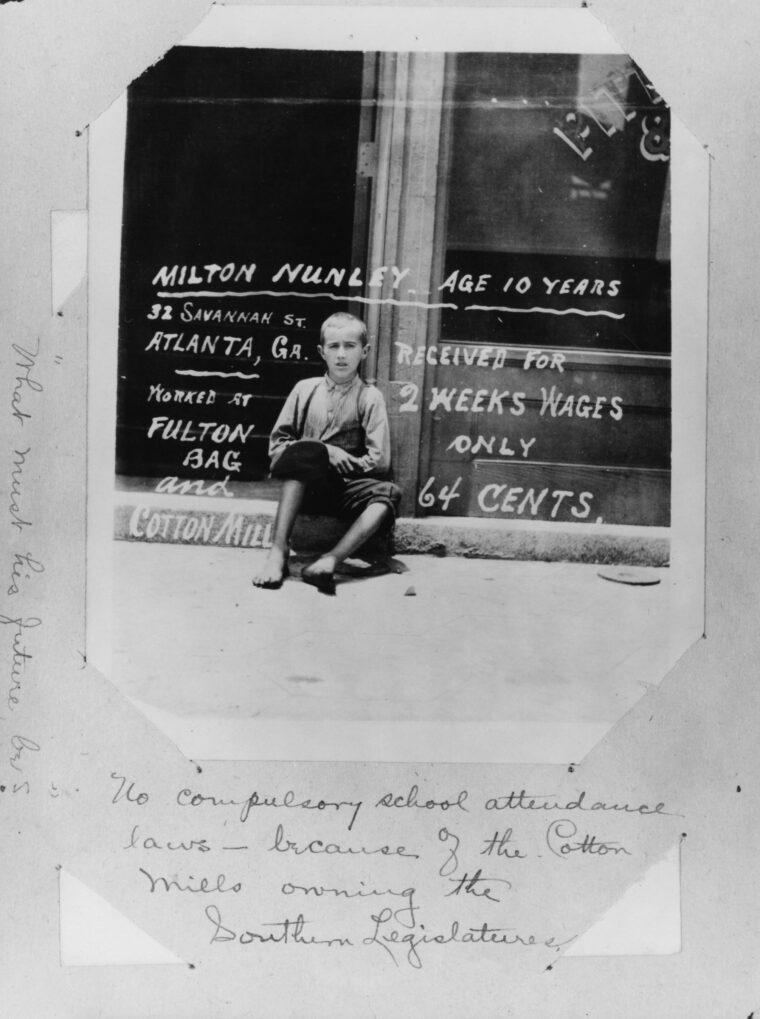 MILTON NUNLEY. AGE 10 YEARS
32 SAVANNAH ST.
ATLANTA, GA.
WORKED AT
FULTON
BAG
and
COTTON MILL
RECEIVED FOR
2 WEEKS WAGES
ONLY
64 CENTS.
No compulsory school attendance
laws — because of the Cotton
Mills owning the
Southern Legislatures.
"What must his future be?"